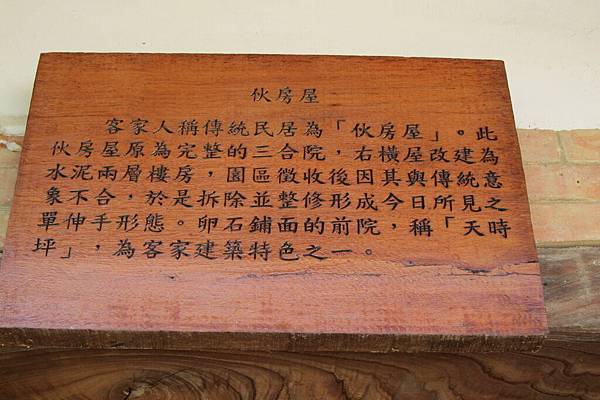 伙房屋
客家人稱傳統民居為「伙房屋」。此
伙房屋原為完整的三合院，右橫屋改建為
水泥兩層樓房，園區徵收後因其與傳統意
象不合，於是拆除並整修形成今日所見之
單伸手形態。卵石鋪面的前院，稱「天時
坪」，為客家建築特色之一。